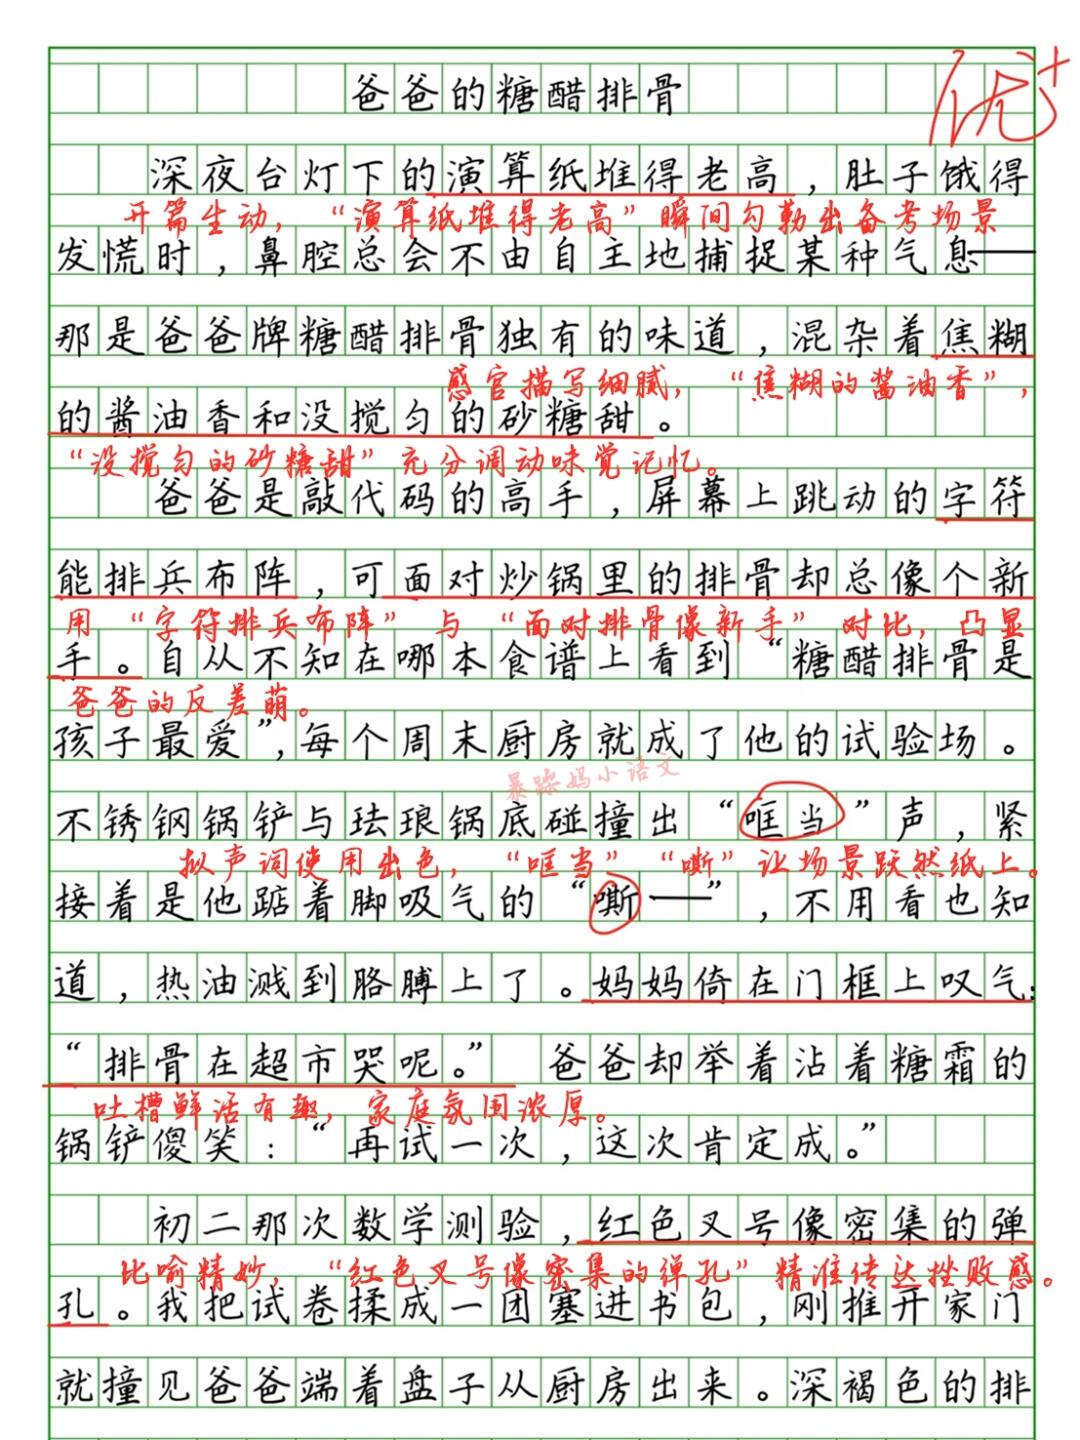 爸爸的糖醋排骨
优+
深夜台灯下的演算纸堆得老高，肚子饿得
开篇生动，“演算纸堆得老高”瞬间勾勒出备考场景
发慌时，鼻腔总会不由自主地捕捉某种气息——
那是爸爸牌糖醋排骨独有的味道，混杂着焦糊
感官描写细腻，“焦糊的酱油香”，
的酱油香和没搅匀的砂糖甜。
“没搅匀的砂糖甜”充分调动味觉记忆。
爸爸是敲代码的高手，屏幕上跳动的字符
能排兵布阵，可面对炒锅里的排骨却总像个新
用“字符排兵布阵”与“面对排骨像新手”对比，凸显
手。自从不知在哪本食谱上看到“糖醋排骨是
爸爸的反差萌。
孩子最爱”，每个周末厨房就成了他的试验场。
暴躁妈小语文
不锈钢锅铲与珐琅锅底碰撞出“哐当”声，紧
拟声词使用出色，“哐当”“嘶”让场景跃然纸上。
接着是他踮着脚吸气的“嘶——”，不用看也知
道，热油溅到胳膊上了。妈妈倚在门框上叹气：
“排骨在超市哭呢。”爸爸却举着沾着糖霜的
吐槽鲜活有趣，家庭氛围浓厚。
锅铲傻笑：“再试一次，这次肯定成。”
初二那次数学测验，红色叉号像密集的弹
比喻精妙，“红色叉号像密集的弹孔”精准传达挫败感。
孔。我把试卷揉成一团塞进书包，刚推开家门
就撞见爸爸端着盘子从厨房出来。深褐色的排